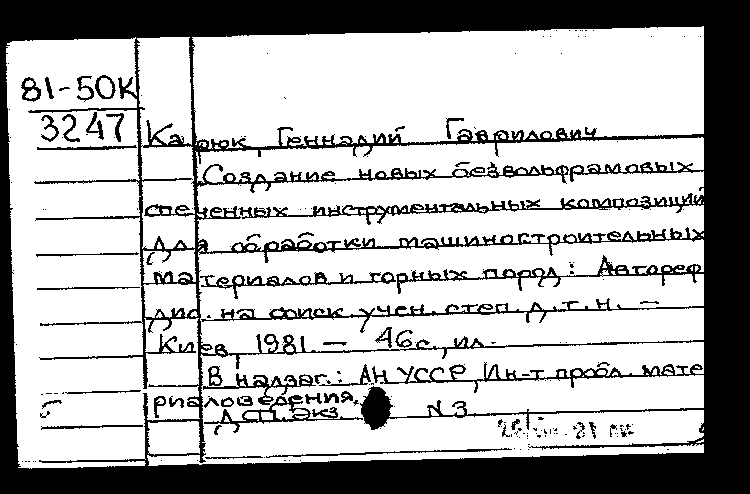 81-50К
3247
Карюк, Геннадий Гаврилович
Создание новых безвольфрамовых
спеченных инструментальных композиций
для обработки машиностроительных
материалов и горных пород: Автореф
дис. на соиск. учен. степ. д.т.н. —
Киев, 1981. — 46с., ил.
В надзаг.: АН УССР, Ин-т пробл. мате
риаловедения.
ДСП. Экз. N 3